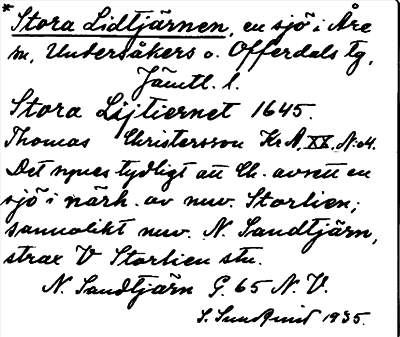 * Stora Lidtjärnen, en sjö i Åre
m, Undersåkers o. Offerdals tg,
Jämtl. l.
Stora Lijtiernet 1645.
Thomas Christersson Kr A, XX, N:4.
Det synes tydligt att Ch. avsett en
sjö i närh. av nuv. Storlien;
sannolikt nuv. N. Sandtjärn,
strax V Storlien stn.
N. Sandtjärn G. 65 N. V.
S. Sundquist 1935.